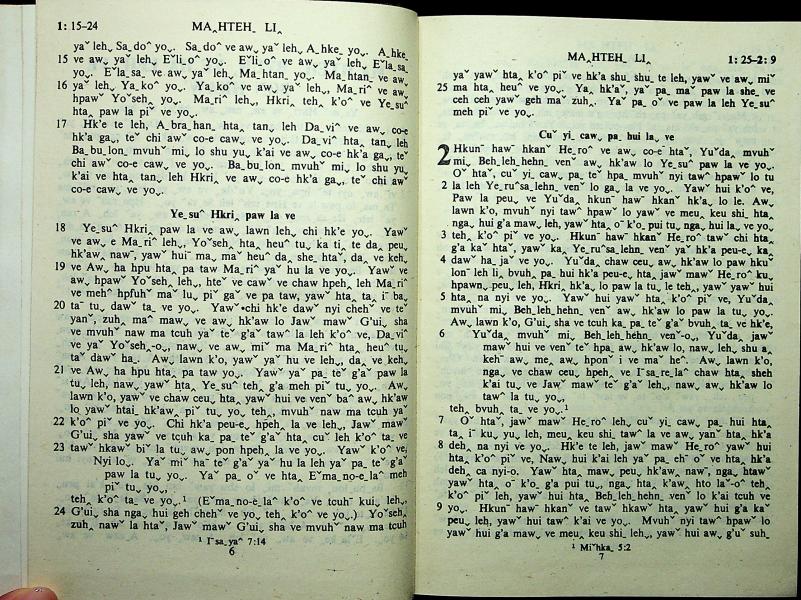 1: 15–24 MAꞈHTEH˯ LIꞈ
yaˇ leh˯ Sa˯doˆ yo˯. Sa˯doˆ ve aw˯ yaˇ leh˯ A˯hke˯ yo˯. A˯hke˯
15 ve aw˯ yaˇ leh˯ Eˇli˯oˆ yo˯. Eˇli˯oˆ ve aw˯ yaˇ leh˯ Eˇla˯sa˯
yo˯. Eˇla˯sa˯ ve aw˯ yaˇ leh˯ Ma˯htan˯ yo˯. Ma˯htan˯ ve aw˯
16 yaˇ leh˯ Ya˯koˆ yo˯. Ya˯koˆ ve aw˯ yaˇ leh˯ Ma˯riˆ ve aw˯
hpawˇ Yoˇsehꞈ yo˯. Ma˯riˆ leh˯ Hkriꞈ tehꞈ k'oˆ ve Ye˯suˆ
htaꞈ paw la piˇ ve yo˯.
17 Hk'e te leh, A˯bra˯han˯ htaꞈ tan˯ leh Da˯viˆ ve aw˯ co-e
hk'a ga˯, teˇ chi awˇ co-e caw ve yo˯. Da˯viˆ htaꞈ tan leh
Ba˯bu˯lon˯ mvuhˇ mi˯ lo shu yu˯ k'ai ve aw˯ co-e hk'a ga˯, teˇ
chi awˇ co-e caw ve yo˯. Ba˯bu˯lon˯ mvuhˇ mi˯ lo shu yu˯
k'ai ve htaꞈ tan leh Hkriꞈ ve aw˯ co-e hk'a ga˯, teˇ chi awˇ
co-e caw˯ ve yo˯.
Ye˯suˆ Hkriꞈ paw la ve
18 Ye˯suˆ Hkriꞈ paw la ve aw˯ lawn leh˯ chi hk'e yo˯. Yawˇ
ve aw˯ e Ma˯riˆ leh˯ Yoˇsehꞈ htaꞈ heuˆ tu˯ ka ti˯ te da˯ peu˯
hk'aw˯ nawˉ, yawˇ huiˉ ma˯ maˇ heuˆ da˯ she˯ htaˇ, da˯ ve keh˯
19 ve Aw˯ ha hpu htaꞈ pa taw Ma˯riˆ yaˇ hu la ve yo˯. Yawˇ ve
aw˯ hpawˇ Yoˇsehꞈ leh˯ hteˇ ve cawˇ ve chaw hpeh˯ leh Ma˯riˆ
ve mehˆ hpfuhˇ maˇ lu˯ piˇ gaˇ ve pa taw, yawˇ htaꞈ taꞈ iˉ ba˯
20 taˉ tu˯ dawˇ ta˯ ve yo˯. Yawˇ chi hk'e dawˇ nyi chehˇ ve teˇ
yanˇ, zuhꞈ maˆ maw˯ ve aw˯ hk'aw lo Jawˇ mawˇ G'ui˯ sha
ve mvuhˇ naw ma tcuh yaˇ teˇ g'aˇ tawˆ la leh k'oˆ ve, Da˯viˆ
ve yaˇ Yoˇsehꞈ-o˯, naw˯ ve aw˯ miˇ ma Ma˯riˆ htaꞈ heuˆ tu˯
taˇ dawˇ ha˯. Aw˯ lawn k'o, yawˇ yaˇ hu ve leh˯ da˯ ve keh˯
21 ve Aw˯ ha hpu htaꞈ pa taw yo˯. Yawˇ yaˇ pa˯ teˇ g'aˇ paw la
tu˯ leh, naw˯ yawˇ htaꞈ Ye˯suˆ tehꞈ g'a meh piˇ tu˯ yo˯. Aw˯
lawn k'o, yawˇ ve chaw ceu˯ htaꞈ yawˇ hui ve venˇ baˆ aw˯ hk'aw
lo yawˇ htai˯ hk'aw˯ piˇ tu˯ yo˯ tehꞈ mvuhˇ naw ma tcuh yaˇ
22 k'oˆ piˇ ve yo˯. Chi hk'a peu-e˯ hpehꞈ la ve leh˯ Jawˇ mawˇ
G'ui˯ sha yawˇ ve tcuh ka˯ pa˯ teˇ g'aˇ htaꞈ cuˇ leh k'oˆ ta˯ ve
23 tawˇ hkawˇ biˇ la tu˯ aw˯ pon hpehꞈ la ve yo˯. Yawˇ k'oˆ ve˯
Nyi lo˯. Yaˇ miˇ haˉ teˇ g'aˇ yaˇ hu la leh yaˇ pa˯ teˇ g'aˇ
paw la tu˯ yo˯. Yaˇ pa˯ oˇ ve htaꞈ Eˇma˯no-e˯laˆ meh
piˇ tu˯ yo˯,
tehꞈ k'oˆ ta˯ ve yo˯.¹ (Eˇma˯no-e˯laˆ k'oˆ ve tcuhˉ kui˯ leh˯
24 G'ui˯ sha nga˯ hui geh chehˇ ve yo˯ tehꞈ ve yo˯.) Yoˇsehꞈ
zuhꞈ nawˇ la htaˇ, Jawˇ mawˇ G'ui˯ sha ve mvuhˇ naw ma tcuh
¹ Iˉsa˯yaˆ 7:14
6
MAꞈHTEH˯ LIꞈ 1: 25–2: 9
yaˇ yawˇ htaꞈ k'oˆ piˇ ve hk'a shu˯ shu˯ te leh, yawˇ ve aw˯ miˇ
25 ma htaꞈ heuˆ ve yo˯. Yaꞈ hk'aˇ, yaˇ pa˯ maˇ paw la she˯ ve
ceh ceh yawˇ geh maˇ zuh˯. Yaˇ pa˯ oˇ ve paw la leh Ye˯suˆ
meh piˇ ve yo˯.
Cuˇ yi˯ caw˯ pa˯ hui la˯ ve
2 Hkunˉ hawˇ hkanˇ He˯roˆ ve aw˯ co-eˉ htaˇ, Yuˇda˯ mvuhˇ
mi˯ Beh˯leh˯hehn˯ venˇ aw˯ hk'aw lo Ye˯suˆ paw la ve yo˯.
Oˇ htaˇ, cuˇ yi˯ caw˯ pa˯ teˇ hpa˯ mvuhˇ nyi tawˇ hpawˇ lo tu
2 la leh Ye˯ru˯sa˯lehn˯ venˇ lo ga˯ la ve yo˯. Yawˇ hui k'oˆ ve,
Paw la peu˯ ve Yuˇda˯ hkunˉ hawˇ hkanˇ hk'a˯ lo le. Aw˯
lawn k'o, mvuhˇ nyi tawˇ hpawˇ lo yawˇ ve meu˯ keu shi˯ htaꞈ
nga˯ hui g'a maw˯ leh, yawˇ htaꞈ oˉ k'o˯ pui tu˯ nga˯ hui la˯ ve yo˯
3 tehꞈ k'oˆ piˇ ve yo˯. Hkunˉ hawˇ hkanˇ He˯roˆ tawˇ chi htaꞈ
g'a kaˇ htaˇ, yawˇ ka˯ Ye˯ru˯sa˯lehn˯ venˇ yaˇ hk'a peu-e˯ ka˯
4 dawˇ ha˯ jaˇ ve yo˯. Yuˇda˯ chaw ceu˯ aw˯ hk'aw lo paw hkuˇ
lonˉ leh li˯ bvuh˯ pa˯ hui hk'a peu-e˯ htaꞈ jawˇ mawˇ He˯roˆ ku˯
hpawn˯ peu˯ leh, Hkriꞈ hk'a˯ lo paw la tu˯ le tehꞈ yawˇ yawˇ hui
5 htaꞈ na nyi ve yo˯. Yawˇ hui yawˇ htaꞈ k'oˆ piˇ ve, Yuˇda˯
mvuhˇ mi˯ Beh˯leh˯hehn˯ venˇ aw˯ hk'aw lo paw la tu˯ yo˯.
Aw˯ lawn k'o, G'ui˯ sha ve tcuh ka˯ pa˯ teˇ g'aˇ bvuhˇ ta˯ ve hk'e,
6 Yuˇda˯ mvuhˇ mi˯ Beh˯leh˯hehn˯ venˇ-o˯, Yuˇda˯ jawˇ
mawˇ hui ve venˇ teˇ hpa˯ aw˯ hk'aw lo˯ naw˯ leh˯ shu a˯
kehˆ aw˯ me˯ aw˯ hponˇ i ve maˇ heˆ. Aw˯ lawn k'o,
nga˯ ve chaw ceu˯ hpeh˯ ve Iˉsa˯re˯laˆ chaw htaꞈ sheh
k'ai tu˯ ve Jawˇ mawˇ teˇ g'aˇ leh˯ naw˯ aw˯ hk'aw lo
tawˇ la tu˯ yo˯,
tehꞈ bvuhˇ ta˯ ve yo˯.¹
7 Oˇ htaˇ, jawˇ mawˇ He˯roˆ leh˯ cuˇ yi˯ caw˯ pa˯ hui htaꞈ
taꞈ iˉ ku˯ yu˯ leh, meu˯ keu shi˯ tawˇ la ve aw˯ yanˇ htaꞈ hk'a
8 dehꞈ na nyi ve yo˯. Hk'e te leh, jawˇ mawˇ He˯roˆ yawˇ hui
htaꞈ k'oˆ piˇ ve, Naw˯ hui k'ai leh yaˇ pa˯ ehˉ oˇ ve htaꞈ hk'a
dehꞈ ca nyi-o. Yawˇ htaꞈ maw˯ peu˯ hk'aw˯ nawˉ, nga˯ htawˇ
yawˇ htaꞈ oˉ k'o˯ g'a pui tu˯, nga˯ htaꞈ k'aw˯ hto laˇ-oˆ tehꞈ
k'oˆ piˇ leh, yawˇ hui htaꞈ Beh˯leh˯hehn˯ venˇ lo k'ai tcuh ve
9 yo˯. Hkunˉ hawˇ hkanˇ ve tawˇ hkawˇ htaꞈ yawˇ hui g'a kaˇ
peu˯ leh, yawˇ hui tawˆ k'ai ve yo˯. Mvuhˇ nyi tawˇ hpawˇ lo
yawˇ hui g'a maw˯ ve meu˯ keu shi˯ leh˯, yawˇ hui aw˯ g'uˇ suh˯
¹ Miˇhka˯ 5:2
7